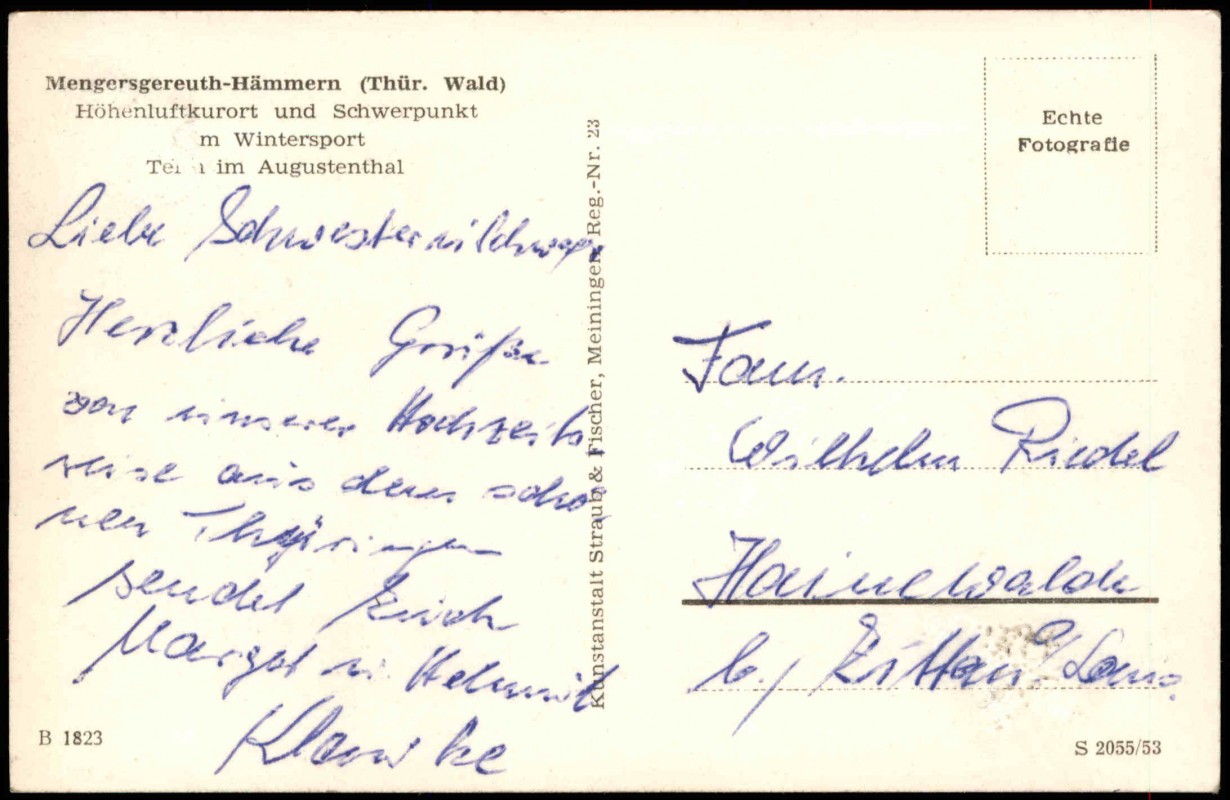 Mengersgereuth-Hämmern (Thür. Wald)
Höhenluftkurort und Schwerpunkt
m Wintersport
im Augustenthal
Liebe Schwester u. Schwager
Herzliche Grüße
von unserer Hochzeits
reise aus dem schö
nen Thüringen
sendet Euch
Margot u. Helmut
B 1823
Kunstanstalt Straub & Fischer, Meiningen, Reg.-Nr. 23
Echte
Fotografie
Fam.
Wilhelm Riedel
Hainewalde
b./ Zittau
S 2055/53